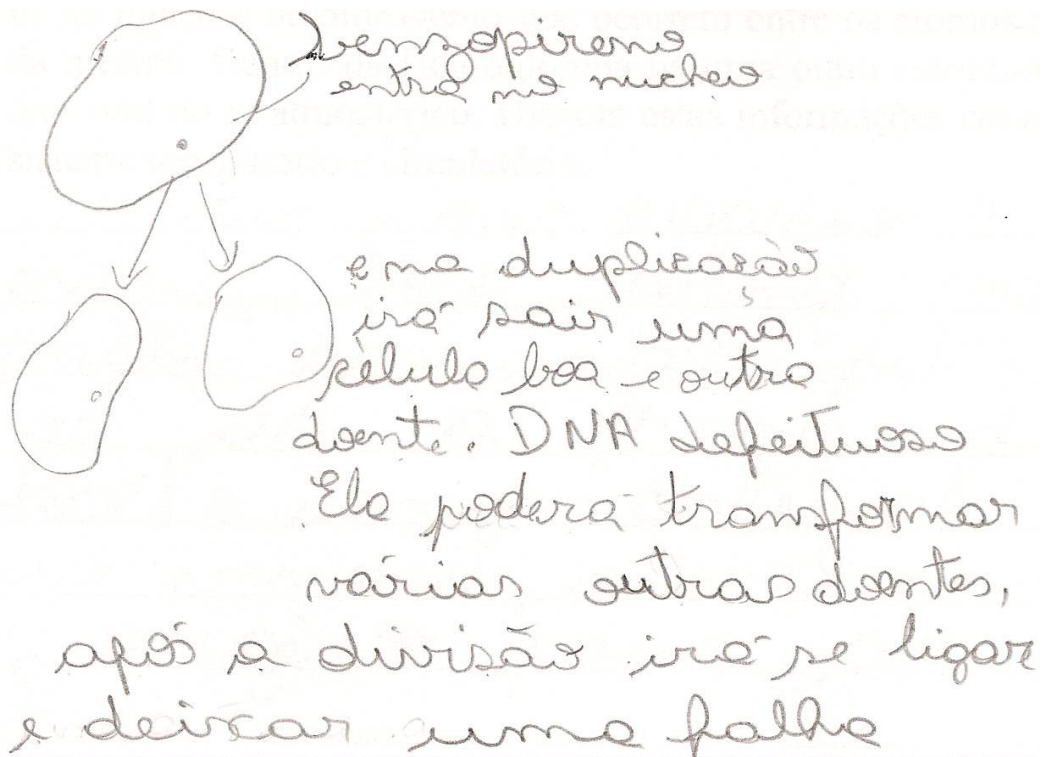 benzopireno
entra no nucleo
e na duplicasão
irá sair uma
célula boa e outra
doente. DNA defeituoso
Ela podera transformar
várias outras doentes,
após a divisão irá se ligar
e deixar uma falha